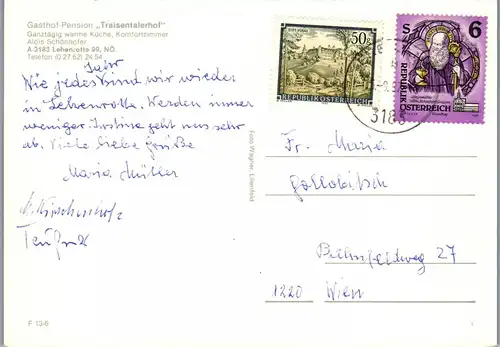 Gasthof-Pension „Traisentalerhof"
Ganztägig warme Küche, Komfortzimmer
Alois Schönhofer
A-3183 Lehenrotte 99, NÖ.
Telefon (0 27 62) 24 54
Jahr
Wie jedes sind wir wieder
in Lehenrotte. Werden immer
weniger Justine geht uns sehr
ab. Viele liebe Grüße
Maria Müller
50g
REPUBLIK ÖSTERREICH
S 6
REPUBLIK
ÖSTERREICH
3183
Foto Wagner, Lilienfeld
Fr. Maria
27
1220 Wien
F 13-6